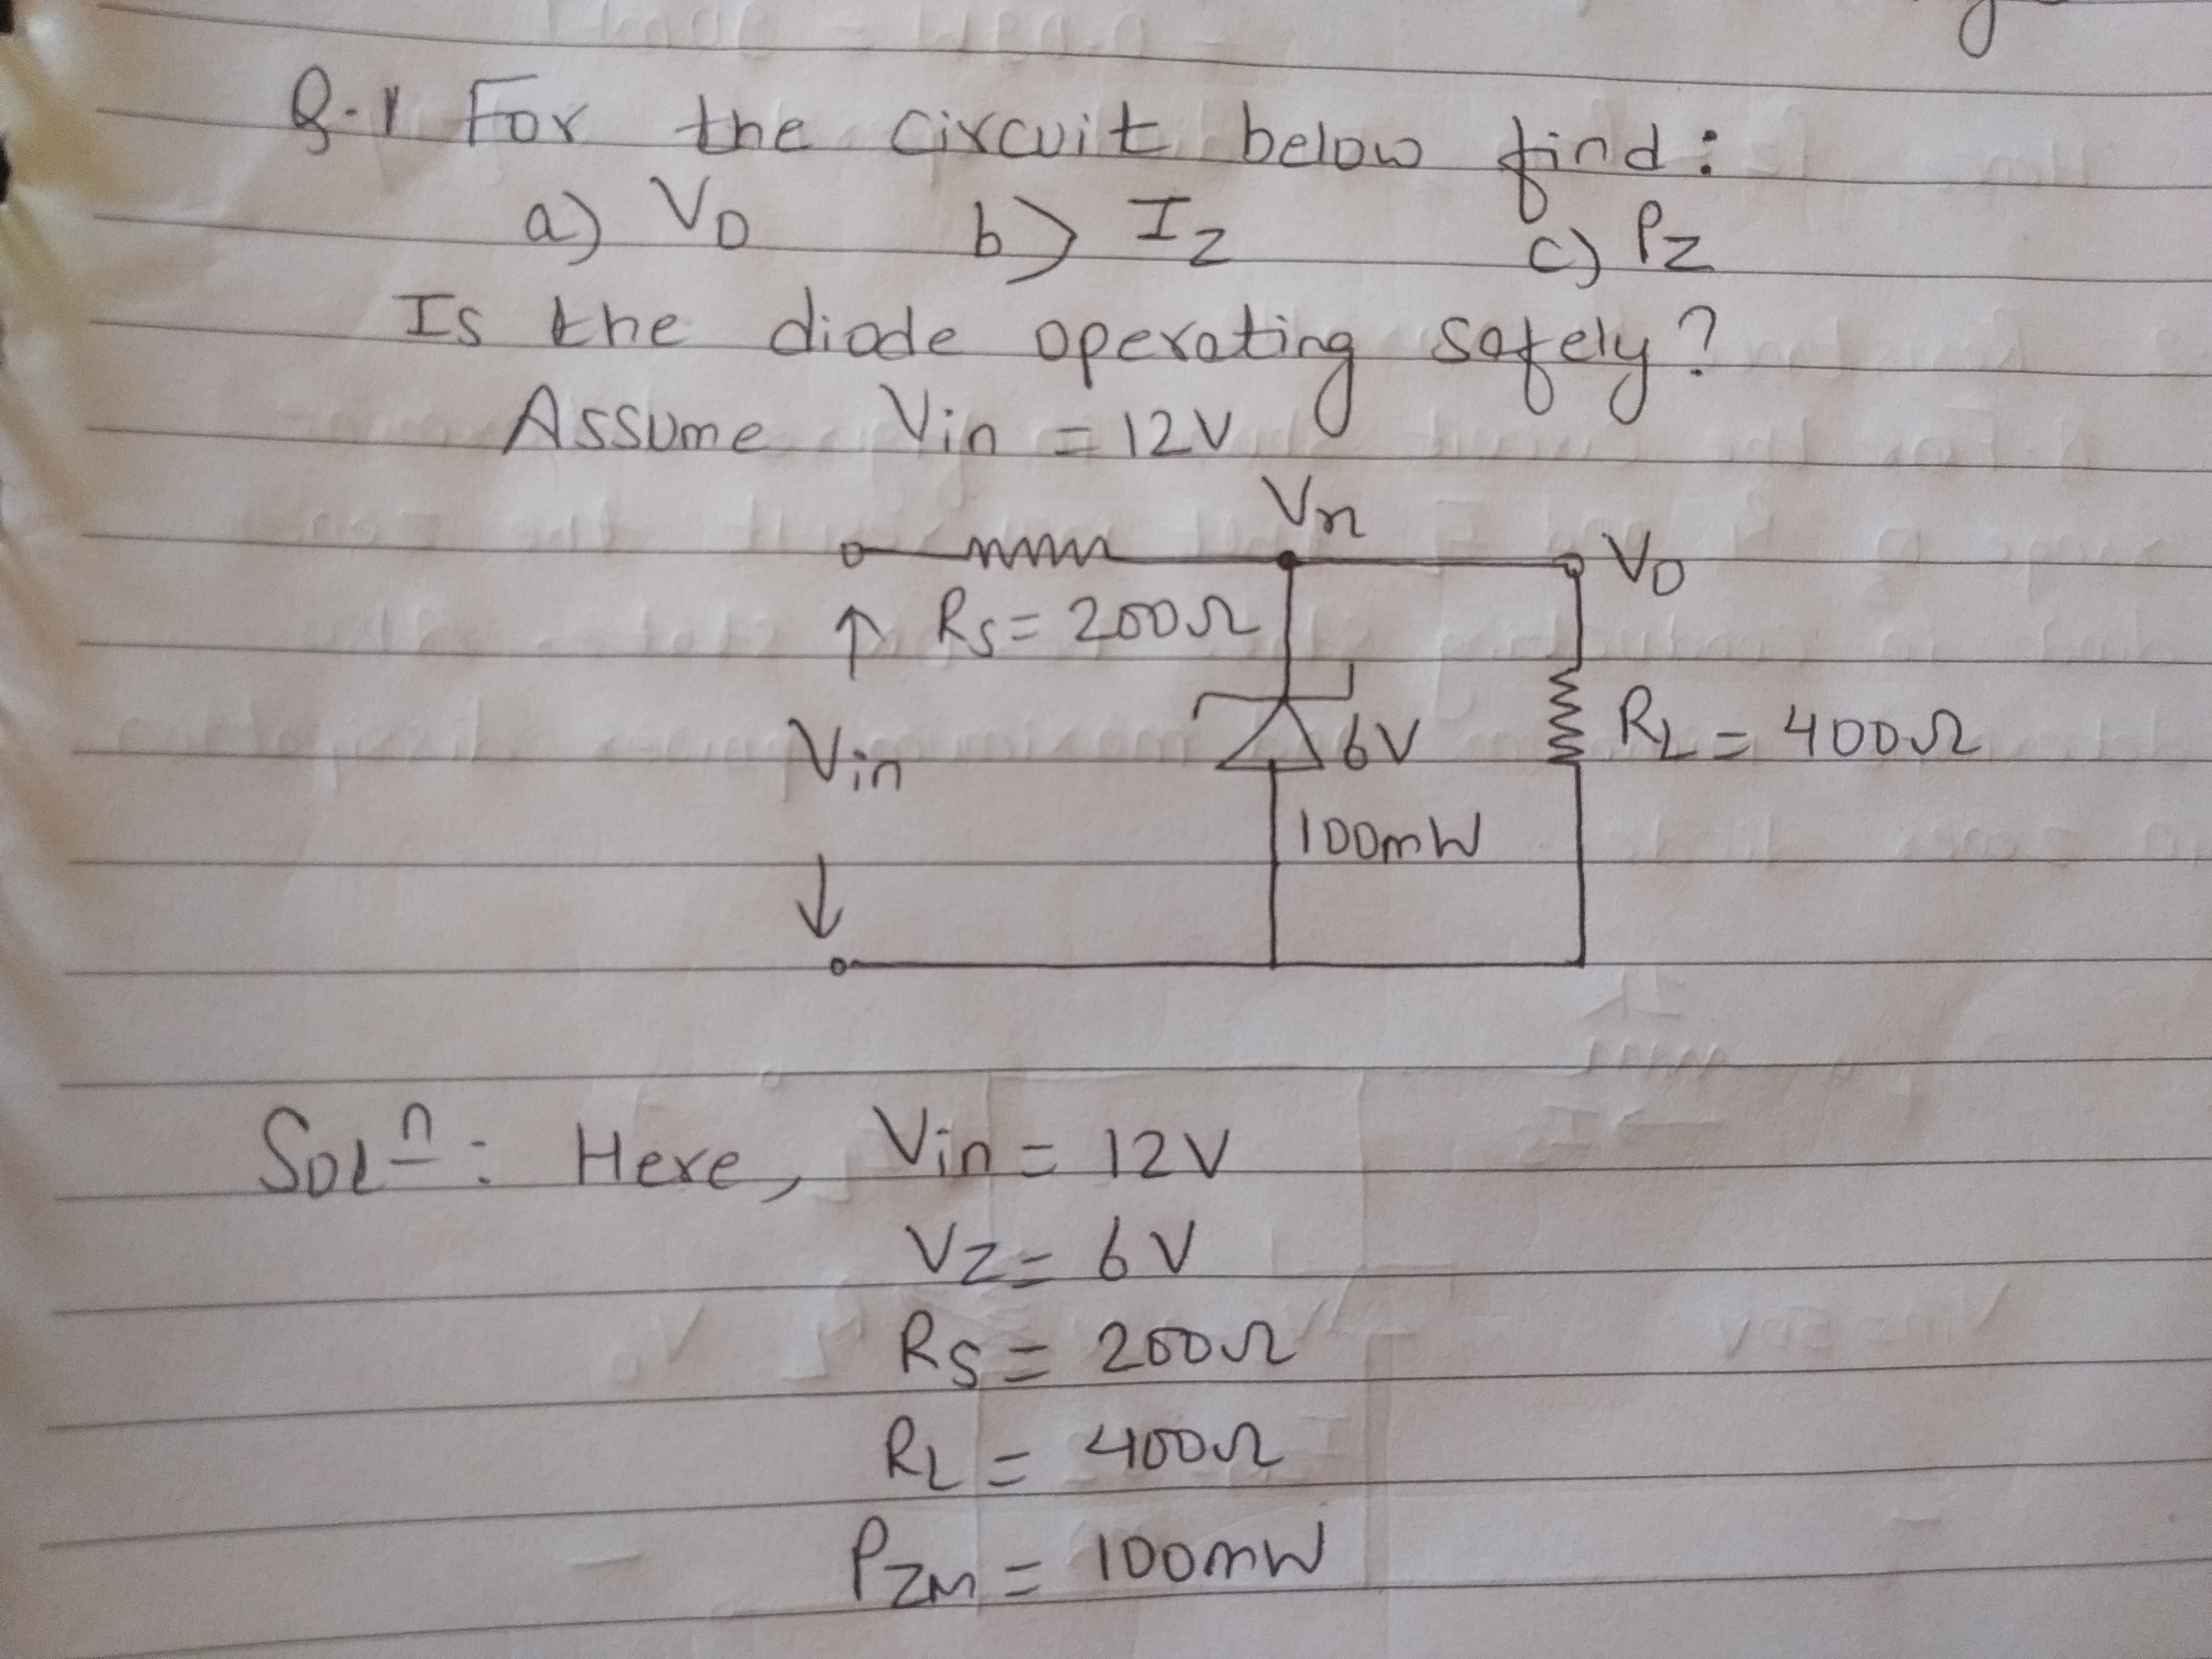 Q.1 For the circuit below find:
a) Vo b) Iz c) Pz
Is the diode operating safely?
Assume Vin = 12V
Vx
Vo
Rs = 200Ω
Vin
6V
RL = 400Ω
100mW
Solⁿ: Here, Vin = 12V
Vz = 6V
Rs = 200Ω
RL = 400Ω
PZM = 100mW